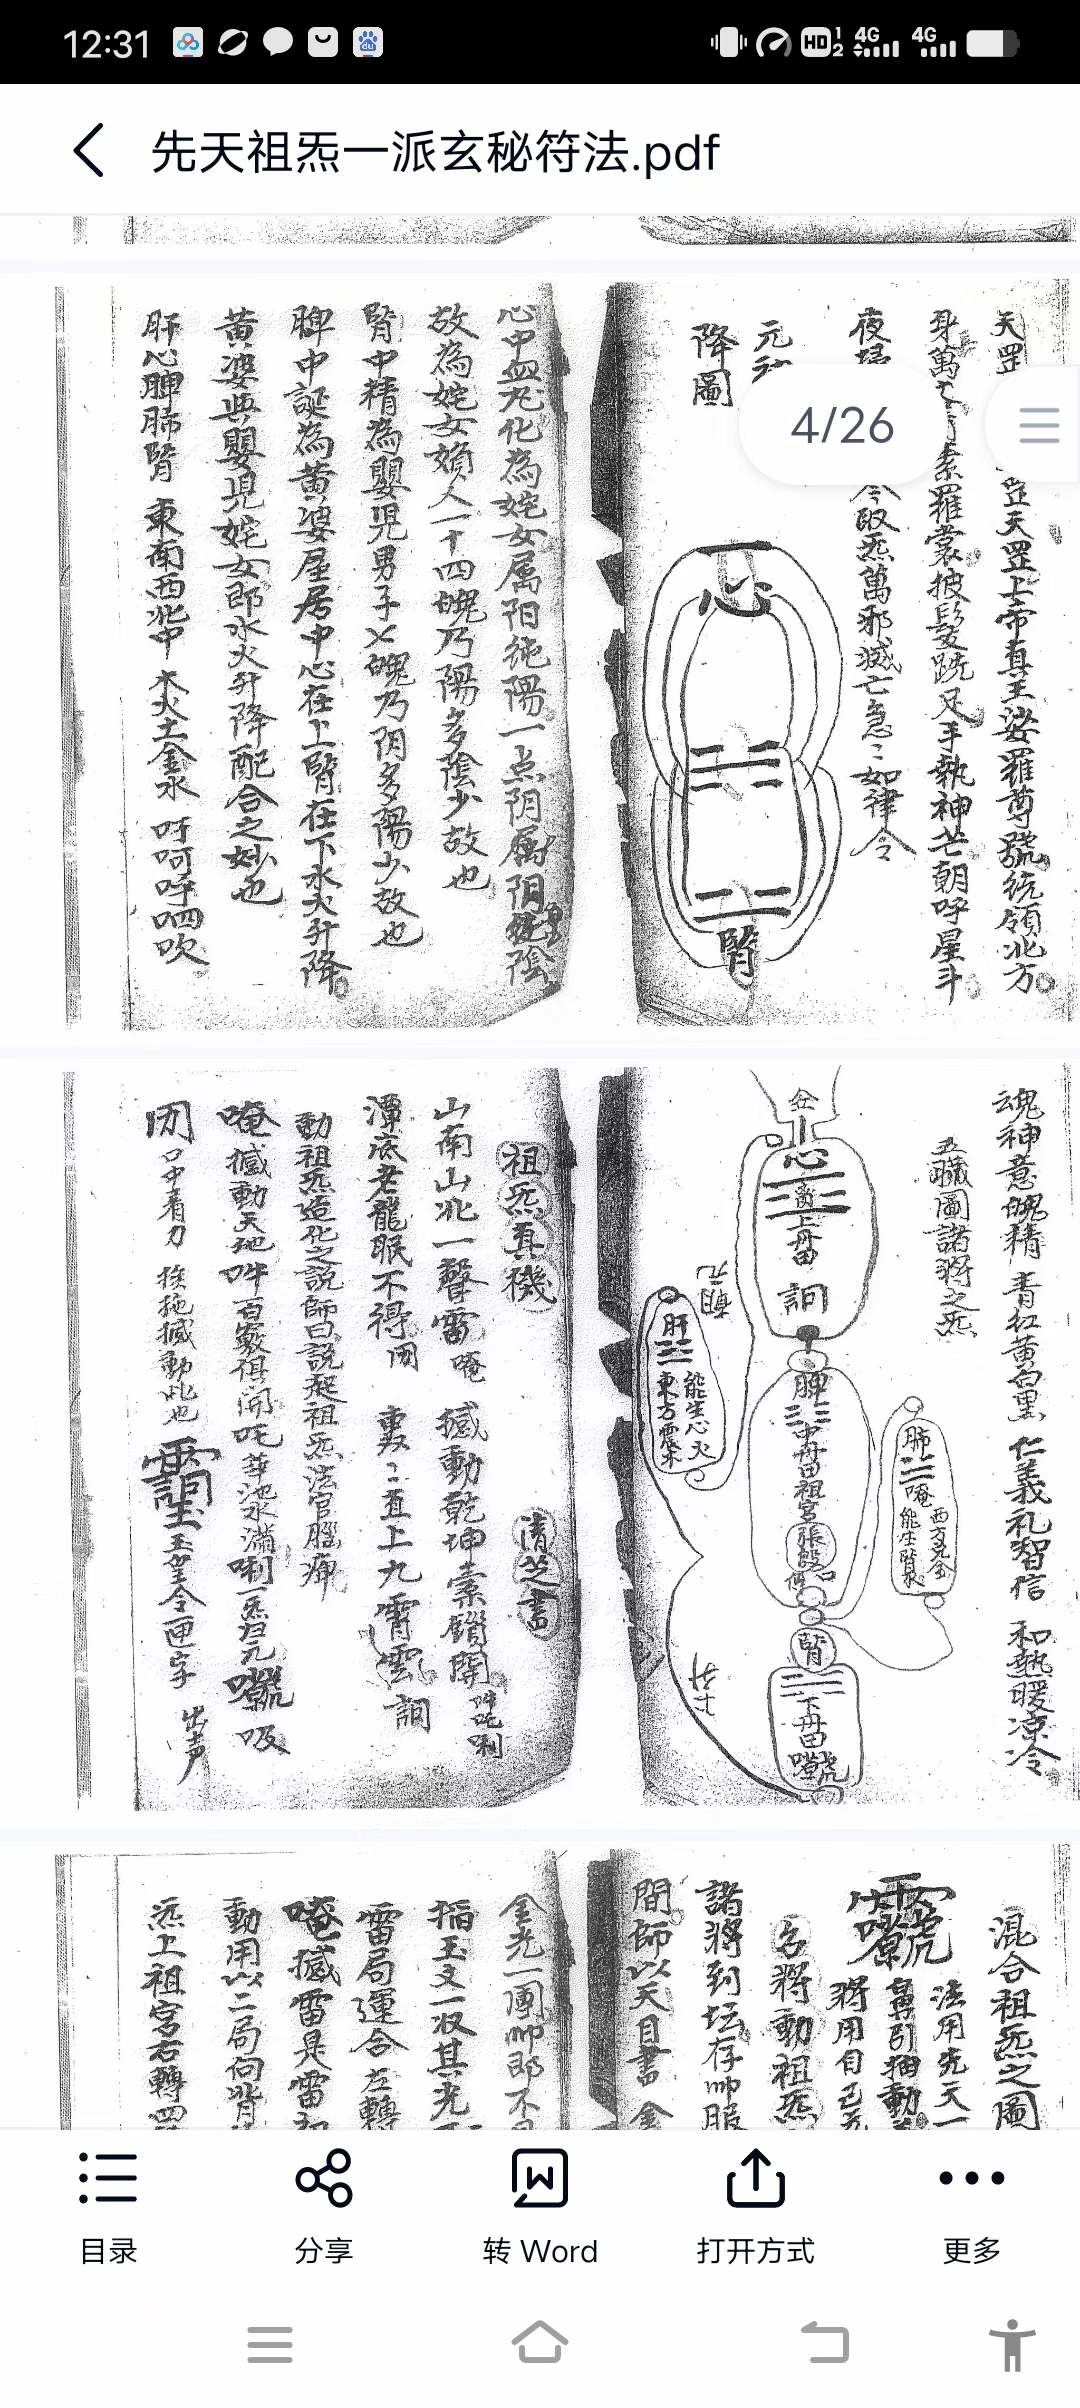 12:31
先天祖炁一派玄秘符法.pdf
4/26
天罡
罡天罡上帝真王娑羅尊號統領北方
身萬
素羅裳披髮跣足手執神芒朝呼星斗
夜
令
炁萬邪滅亡急:如律令
元
降圖
心
腎
心中血
化為姹女属阳純陽一点阴属阴
陰
故為姹女
人一十四魄乃陽多陰少故也
腎中精為嬰児男子七魄乃阴多陽少故也
脾中誕為黄婆屋居中心在上腎在下水火升降
黄婆與嬰児姹女郎水火升降配合之妙也
肝心脾肺腎 東南西北中 木火土金水 吁呵呼呬吹
魂神意魄精 青红黄白黑 仁義礼智信 和熱暖凉冷
五臟圖諸將之炁
心
離
上丹田
訶
朝元
肝
能生心火
東方震木
脾
中丹田祖宮
張
肺
唵
西方兑金
能生腎水
腎
下丹田
祖炁真機
清芝書
山南山北一聲雷 唵 撼動乾坤素鎖開 吽吒唎
潭底老龍眠不得
裏:直上九霄雲 訶
動祖炁造化之説師曰説起祖炁法官腦痛
唵撼動天地吽百竅俱開吒華池水滿唎一炁归元
吸
口中着力
拖撼動此也
玉皇令
字 出声
混合祖炁之圖
法用先天一
引抽動
將用自己元
名將動祖炁
諸將到坛存帅服
間師以天目書金
金光一
帅部不
稲玉文一
收其光
雷局運合左轉
唵撼雷是雷
動用以二局向背
炁上祖宮右轉四
目录
分享
转 Word
打开方式
更多